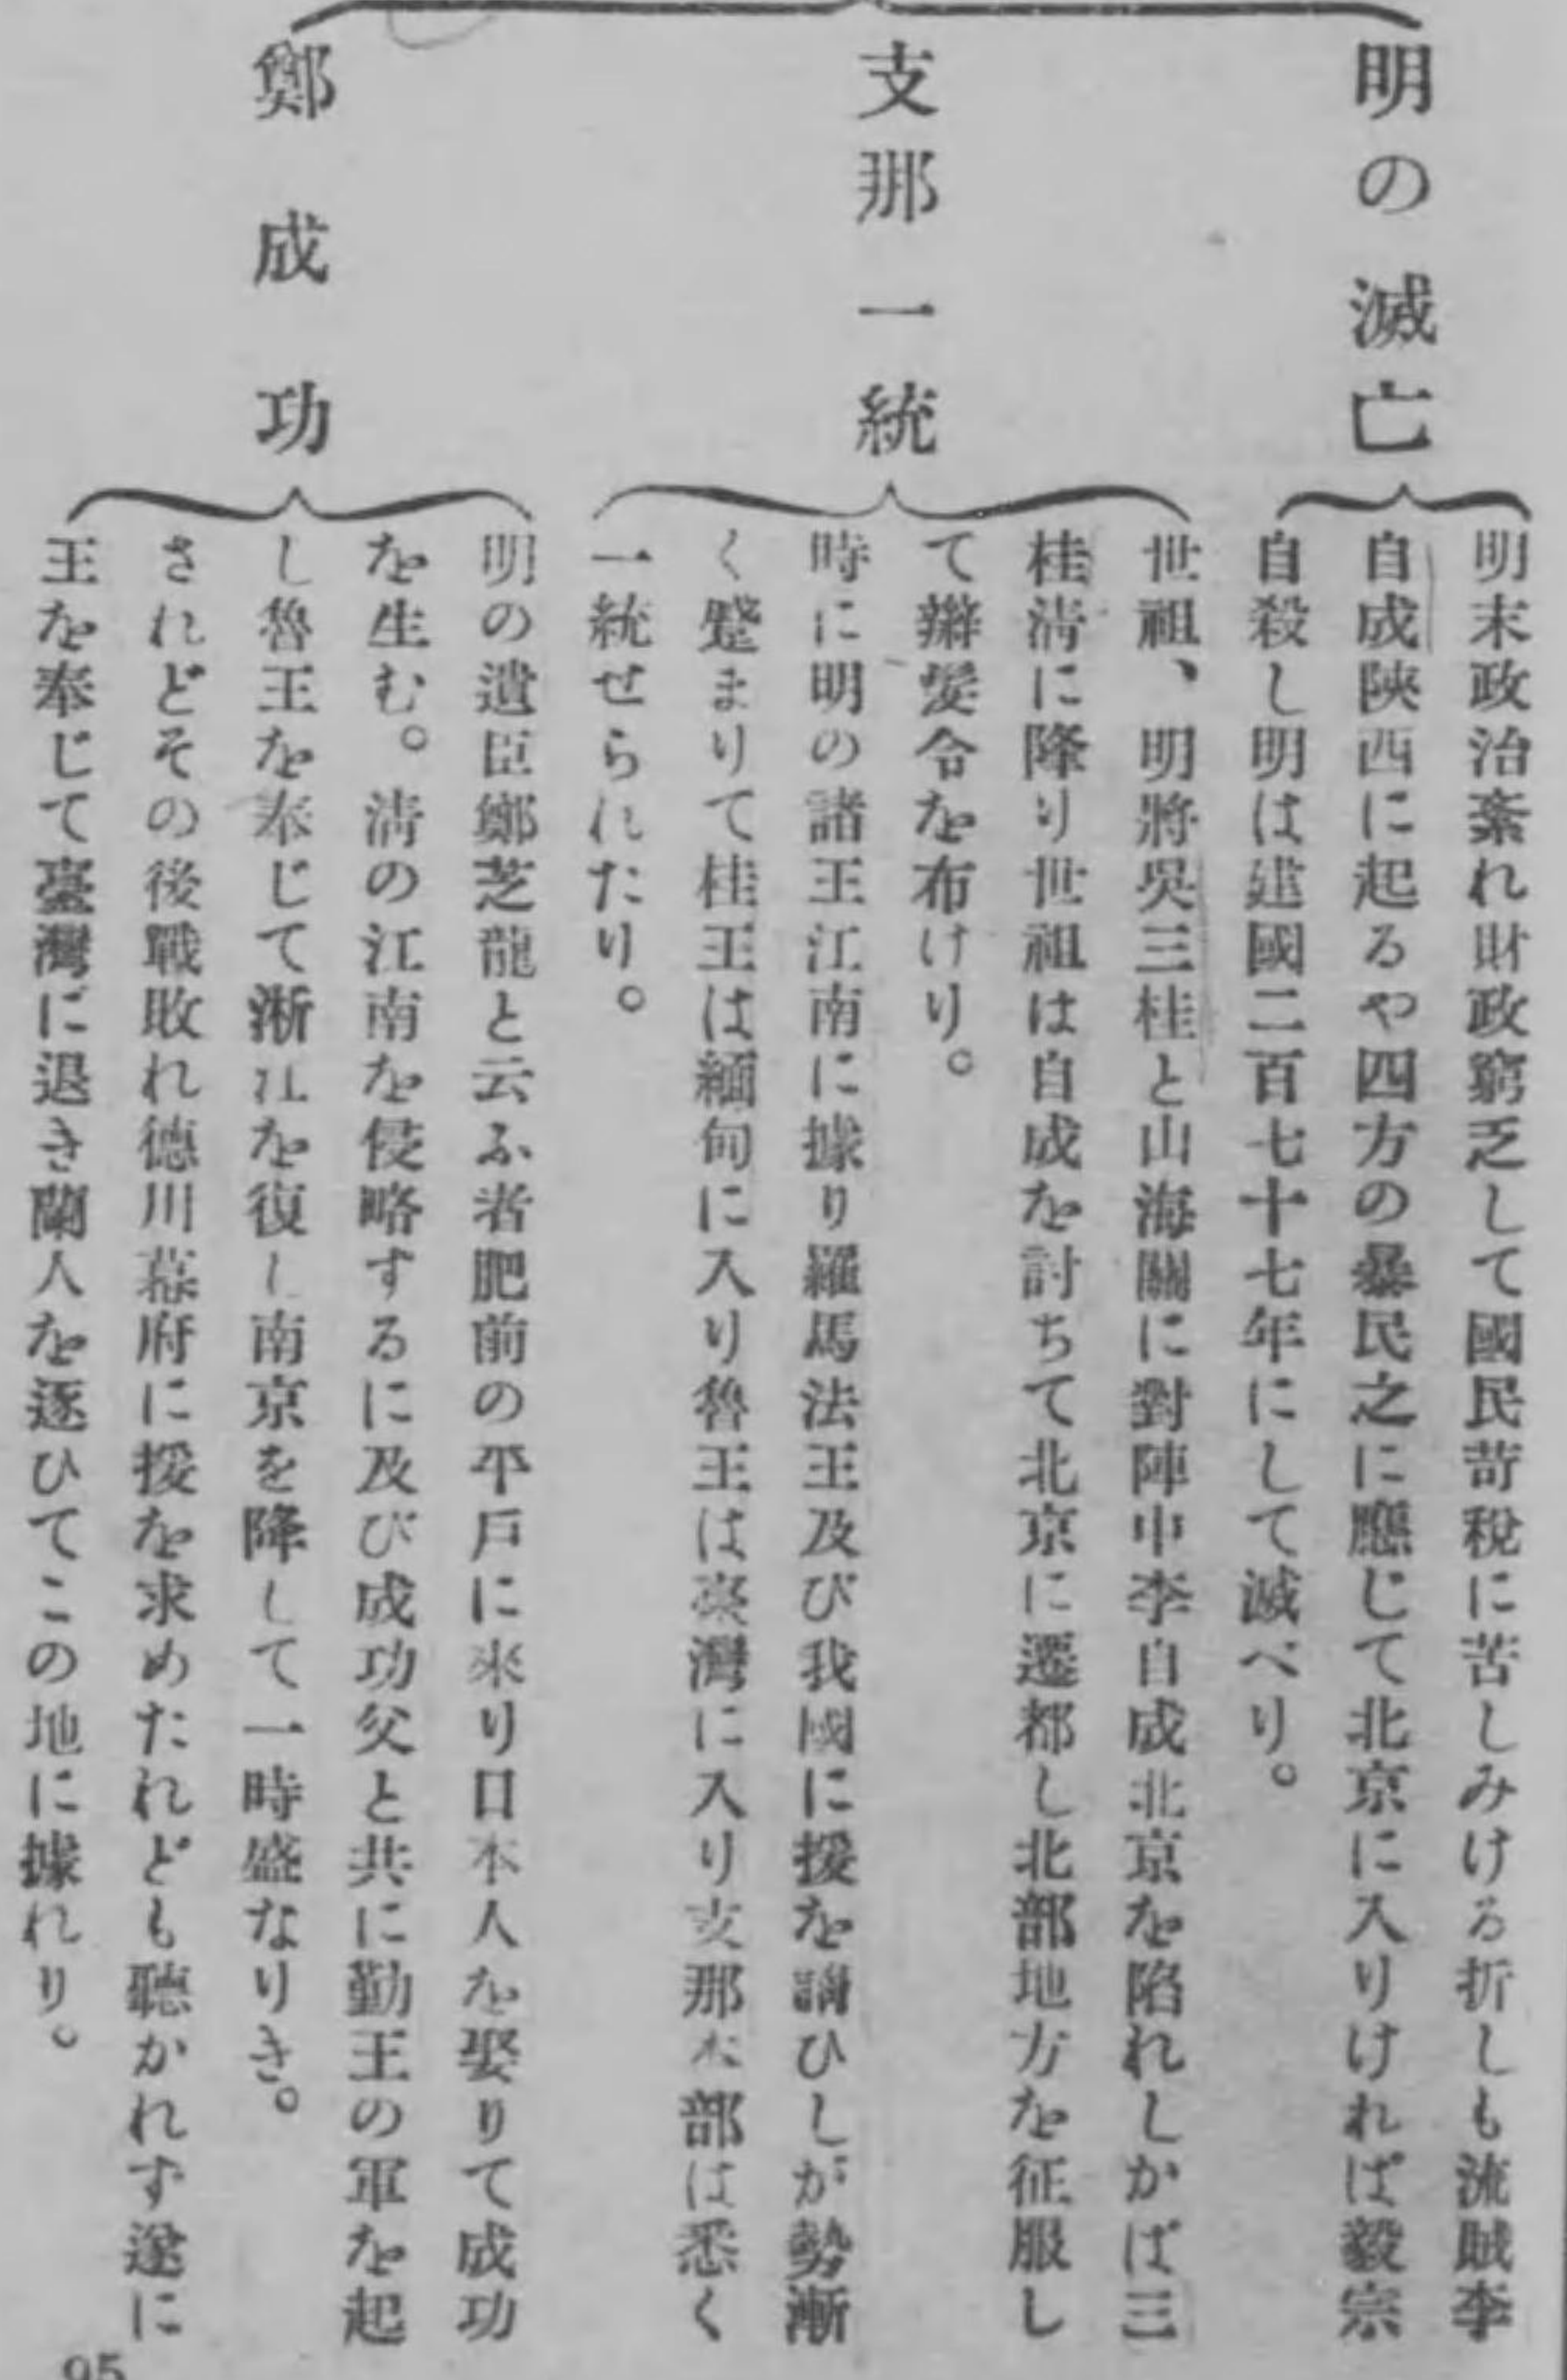 明の滅亡
明末政治紊れ財政窮乏して國民苛稅に苦しみける折しも流賊李
自成陝西に起るや四方の暴民之に應じて北京に入りければ毅宗
自殺し明は建國二百七十七年にして滅べり。
支那一統
世祖、明將吳三桂と山海關に對陣中李自成北京を陷れしかば三
桂淸に降り世祖は自成を討ちて北京に遷都し北部地方を征服し
て辮髮令を布けり。
時に明の諸王江南に據り羅馬法王及び我國に援を請ひしが勢漸
く蹙まりて桂王は緬甸に入り魯王は臺灣に入り支那本部は悉く
一統せられたり。
鄭成功
明の遺臣鄭芝龍と云ふ者肥前の平戶に來り日本人を娶りて成功
を生む。淸の江南を侵略するに及び成功父と共に勤王の軍を起
し魯王を奉じて淅江を復し南京を降して一時盛なりき。
されどその後戰敗れ德川幕府に援を求めたれども聽かれず遂に
王を奉じて臺灣に退き蘭人を逐ひてこの地に據れり。
95